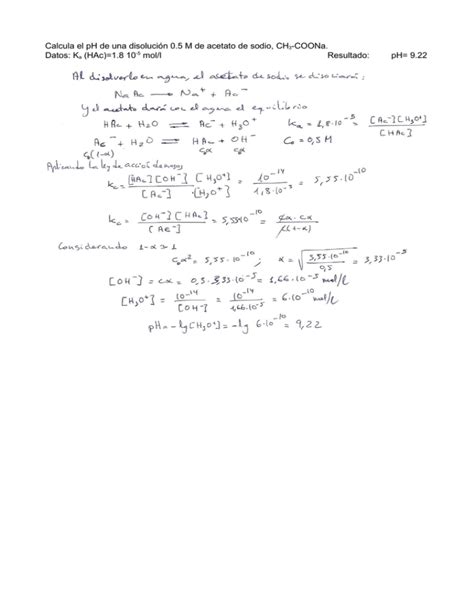 Calcula el pH de una disolución 0.5 M de acetato de sodio, CH₃-COONa.
Datos: Kₐ (HAc)=1.8 10⁻⁵ mol/l Resultado: pH= 9.22
Al disolverlo en agua, el acetato de sodio se disociará:
NaAc ⟶ Na⁺ + Ac⁻
Y el acetato dará con el agua el equilibrio
HAc + H₂O ⇌ Ac⁻ + H₃O⁺ Kₐ = 1,8·10⁻⁵ = [Ac⁻][H₃O⁺] / [HAc]
Ac⁻ + H₂O ⇌ HAc + OH⁻ C₀ = 0,5 M
C₀(1-α) C₀α C₀α
Aplicando la ley de acción de masas
Kc = [HAc][OH⁻] / [Ac⁻] · [H₃O⁺] / [H₃O⁺] = 10⁻¹⁴ / 1,8·10⁻⁵ = 5,55·10⁻¹⁰
Kc = [OH⁻][HAc] / [Ac⁻] = 5,55·10⁻¹⁰ = cα·cα / c(1-α)
Considerando 1-α ≃ 1
C₀α² = 5,55·10⁻¹⁰ ; α = √(5,55·10⁻¹⁰ / 0,5) = 3,33·10⁻⁵
[OH⁻] = cα = 0,5·3,33·10⁻⁵ = 1,66·10⁻⁵ mol/l
[H₃O⁺] = 10⁻¹⁴ / [OH⁻] = 10⁻¹⁴ / 1,66·10⁻⁵ = 6·10⁻¹⁰ mol/l
pH = -lg[H₃O⁺] = -lg 6·10⁻¹⁰ = 9,22